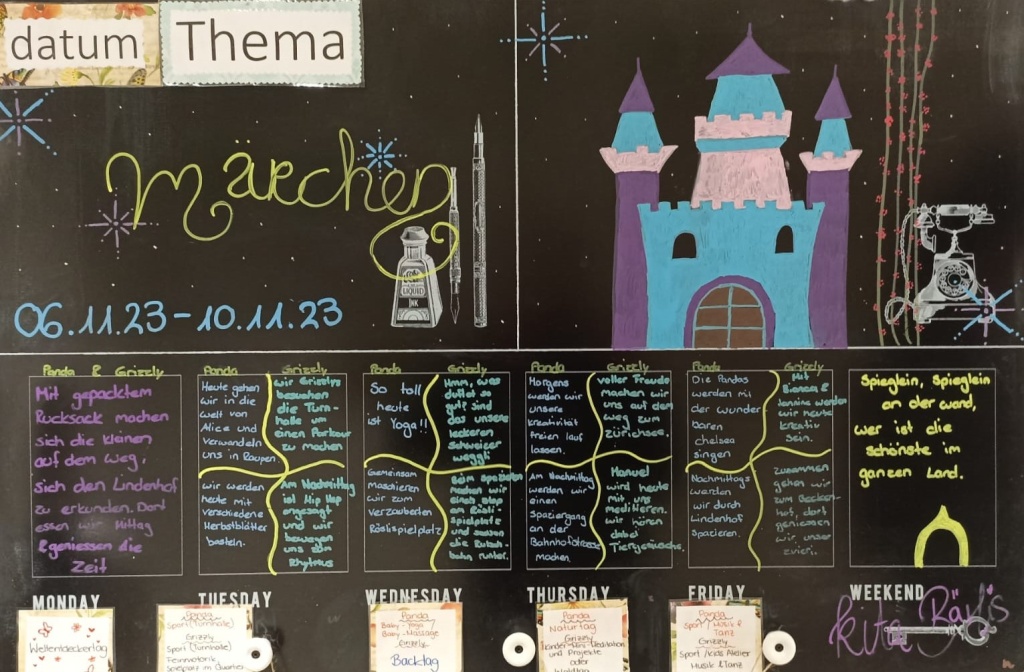 datum
Thema
Märchen
LIQUID
INK
06.11.23-10.11.23
Panda & Grizzly
Mit gepacktem
Rucksack machen
sich die kleinen
auf dem weg,
sich den Lindenhof
zu erkunden. Dort
essen wir Mittag
& geniessen die
Zeit
Panda
Heute gehen
wir in die
welt von
Alice und
verwandeln
uns in Raupen.
Grizzly
wir Grizzlys
besuchen
die Turn-
halle um
einen Parkour
zu machen
wir werden
heute mit
verschiedene
Herbstblätter
basteln.
Am Nachmittag
ist Hip Hop
angesagt
und wir
bewegen
uns zum
Rhytmus
Panda
So toll
heute
ist Yoga!!
Grizzly
Hmn, was
duftet so
gut? sind
das unsere
leckeren
Schweizer
weggli
Gemeinsam
maschieren
wir zum
verzauberten
Röslispielplatz
Beim spazieren
machen wir
einen stop
am Rösli-
spielplatz
und sausen
die Rutsch-
bahn runter.
Panda
Morgens
werden wir
unsere
kreativität
freien lauf
lassen.
Grizzly
voller Freude
machen wir
uns auf dem
weg zum
zürichsee.
Am Nachmittag
werden wir
einen
Spaziergang
an der
Bahnhofstrasse
machen.
Manuel
wird heute
mit uns
meditieren.
wir hören
dabei
Tiergeräusche.
Panda
Die Pandas
werden mit
der wunder
baren
chelsea
singen
Grizzly
Mit
Bianca &
Jannine werden
wir heute
kreativ
sein.
Nachmittags
werden
wir durch
Lindenhof
Spazieren.
zusammen
gehen wir
zum Becken-
hof, dort
geniessen
wir unser
zvieri.
Spieglein, Spieglein
an der wand,
wer ist die
schönste im
ganzen Land.
MONDAY
TUESDAY
WEDNESDAY
THURSDAY
FRIDAY
WEEKEND
Kita Bärlis
Weltentdeckertag
Panda
Sport (Turnhalle)
Grizzly
Sport (Turnhalle)
Feinmotorik
Spielplatz im Quartier
Panda
Baby-Yoga
Baby-Massage
Grizzly
Backtag
Panda
Naturtag
Grizzly
Kinder Mini Meditation
und Projekte
oder
Waldtag
Panda
Sport / Musik &
Tanz
Grizzly
Sport / Kids Atelier
Musik & Tanz